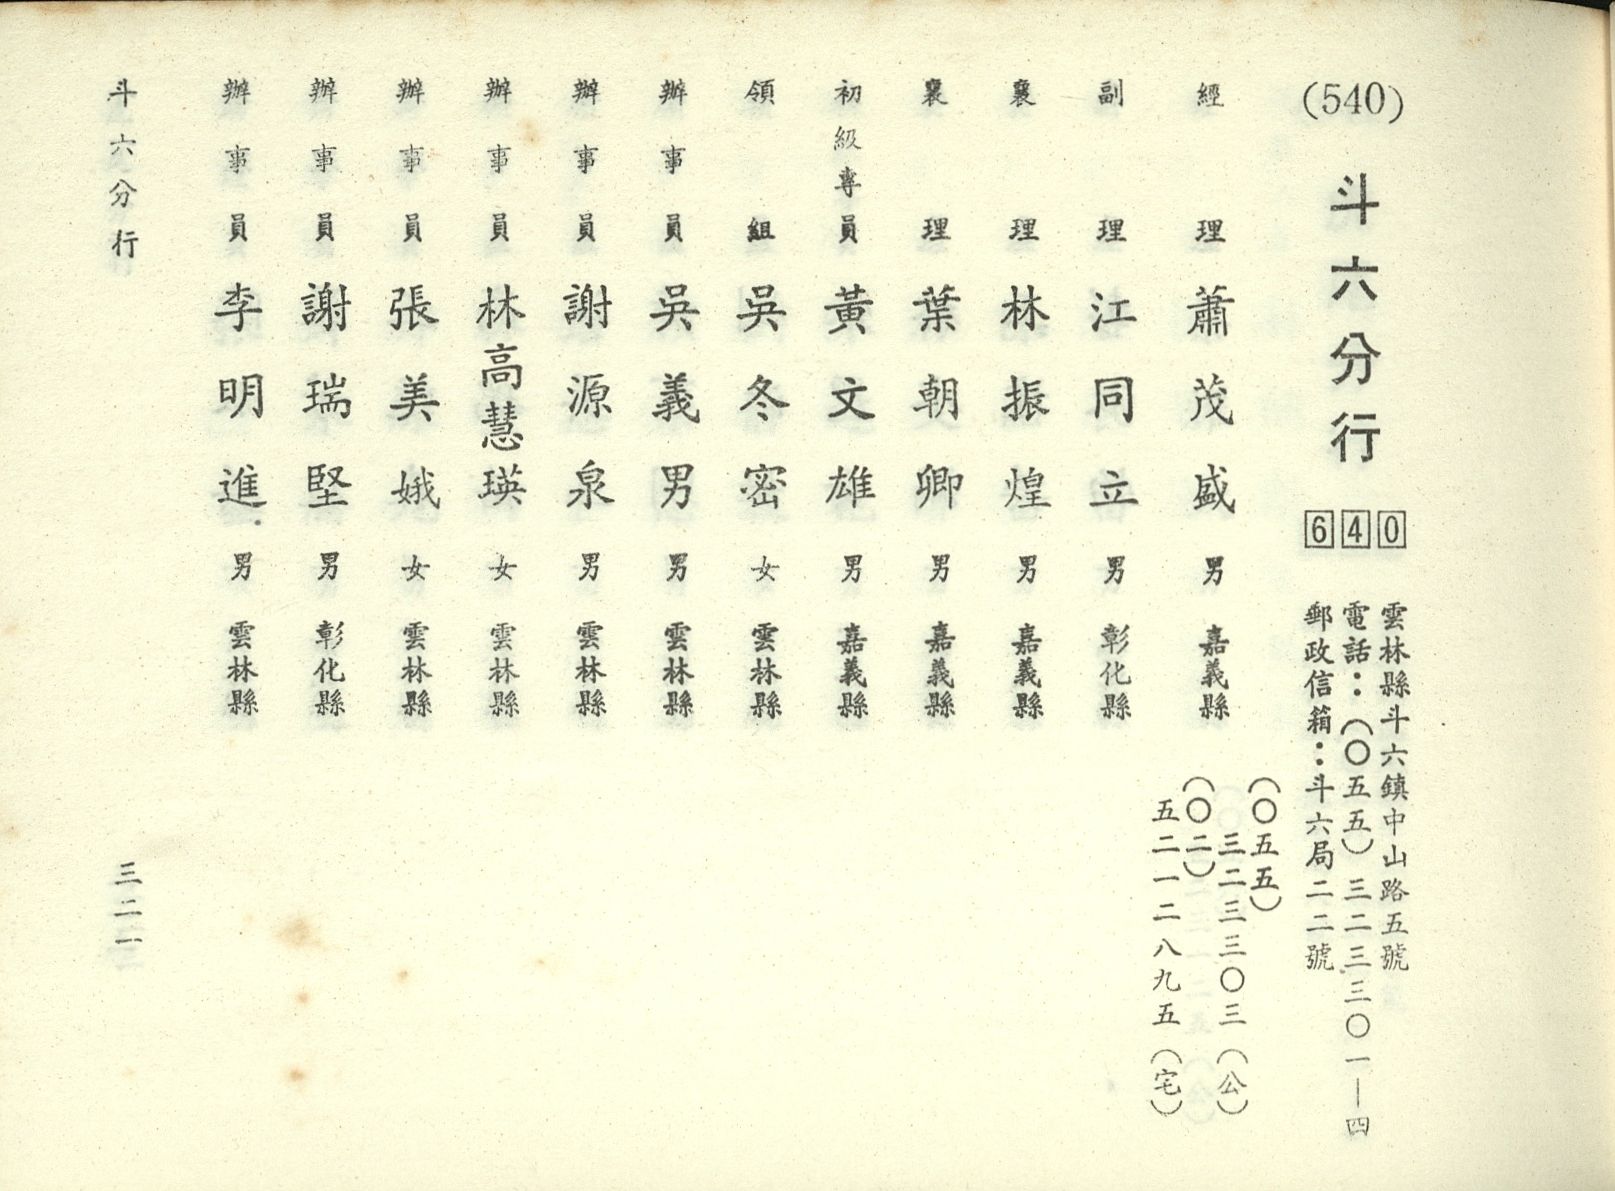 (540) 斗六分行 640
雲林縣斗六鎮中山路五號
電話：（〇五五）三二三三〇一—四
郵政信箱：斗六局二二號
經理 蕭茂盛 男 嘉義縣
（〇五五）
三二三三〇三（公）
（〇二）
五二一二八九五（宅）
副理 江同立 男 彰化縣
襄理 林振煌 男 嘉義縣
襄理 葉朝卿 男 嘉義縣
初級專員 黃文雄 男 嘉義縣
領組 吳冬密 女 雲林縣
辦事員 吳義男 男 雲林縣
辦事員 謝源泉 男 雲林縣
辦事員 林高慧瑛 女 雲林縣
辦事員 張美娥 女 雲林縣
辦事員 謝瑞堅 男 彰化縣
辦事員 李明進 男 雲林縣
斗六分行 三二一